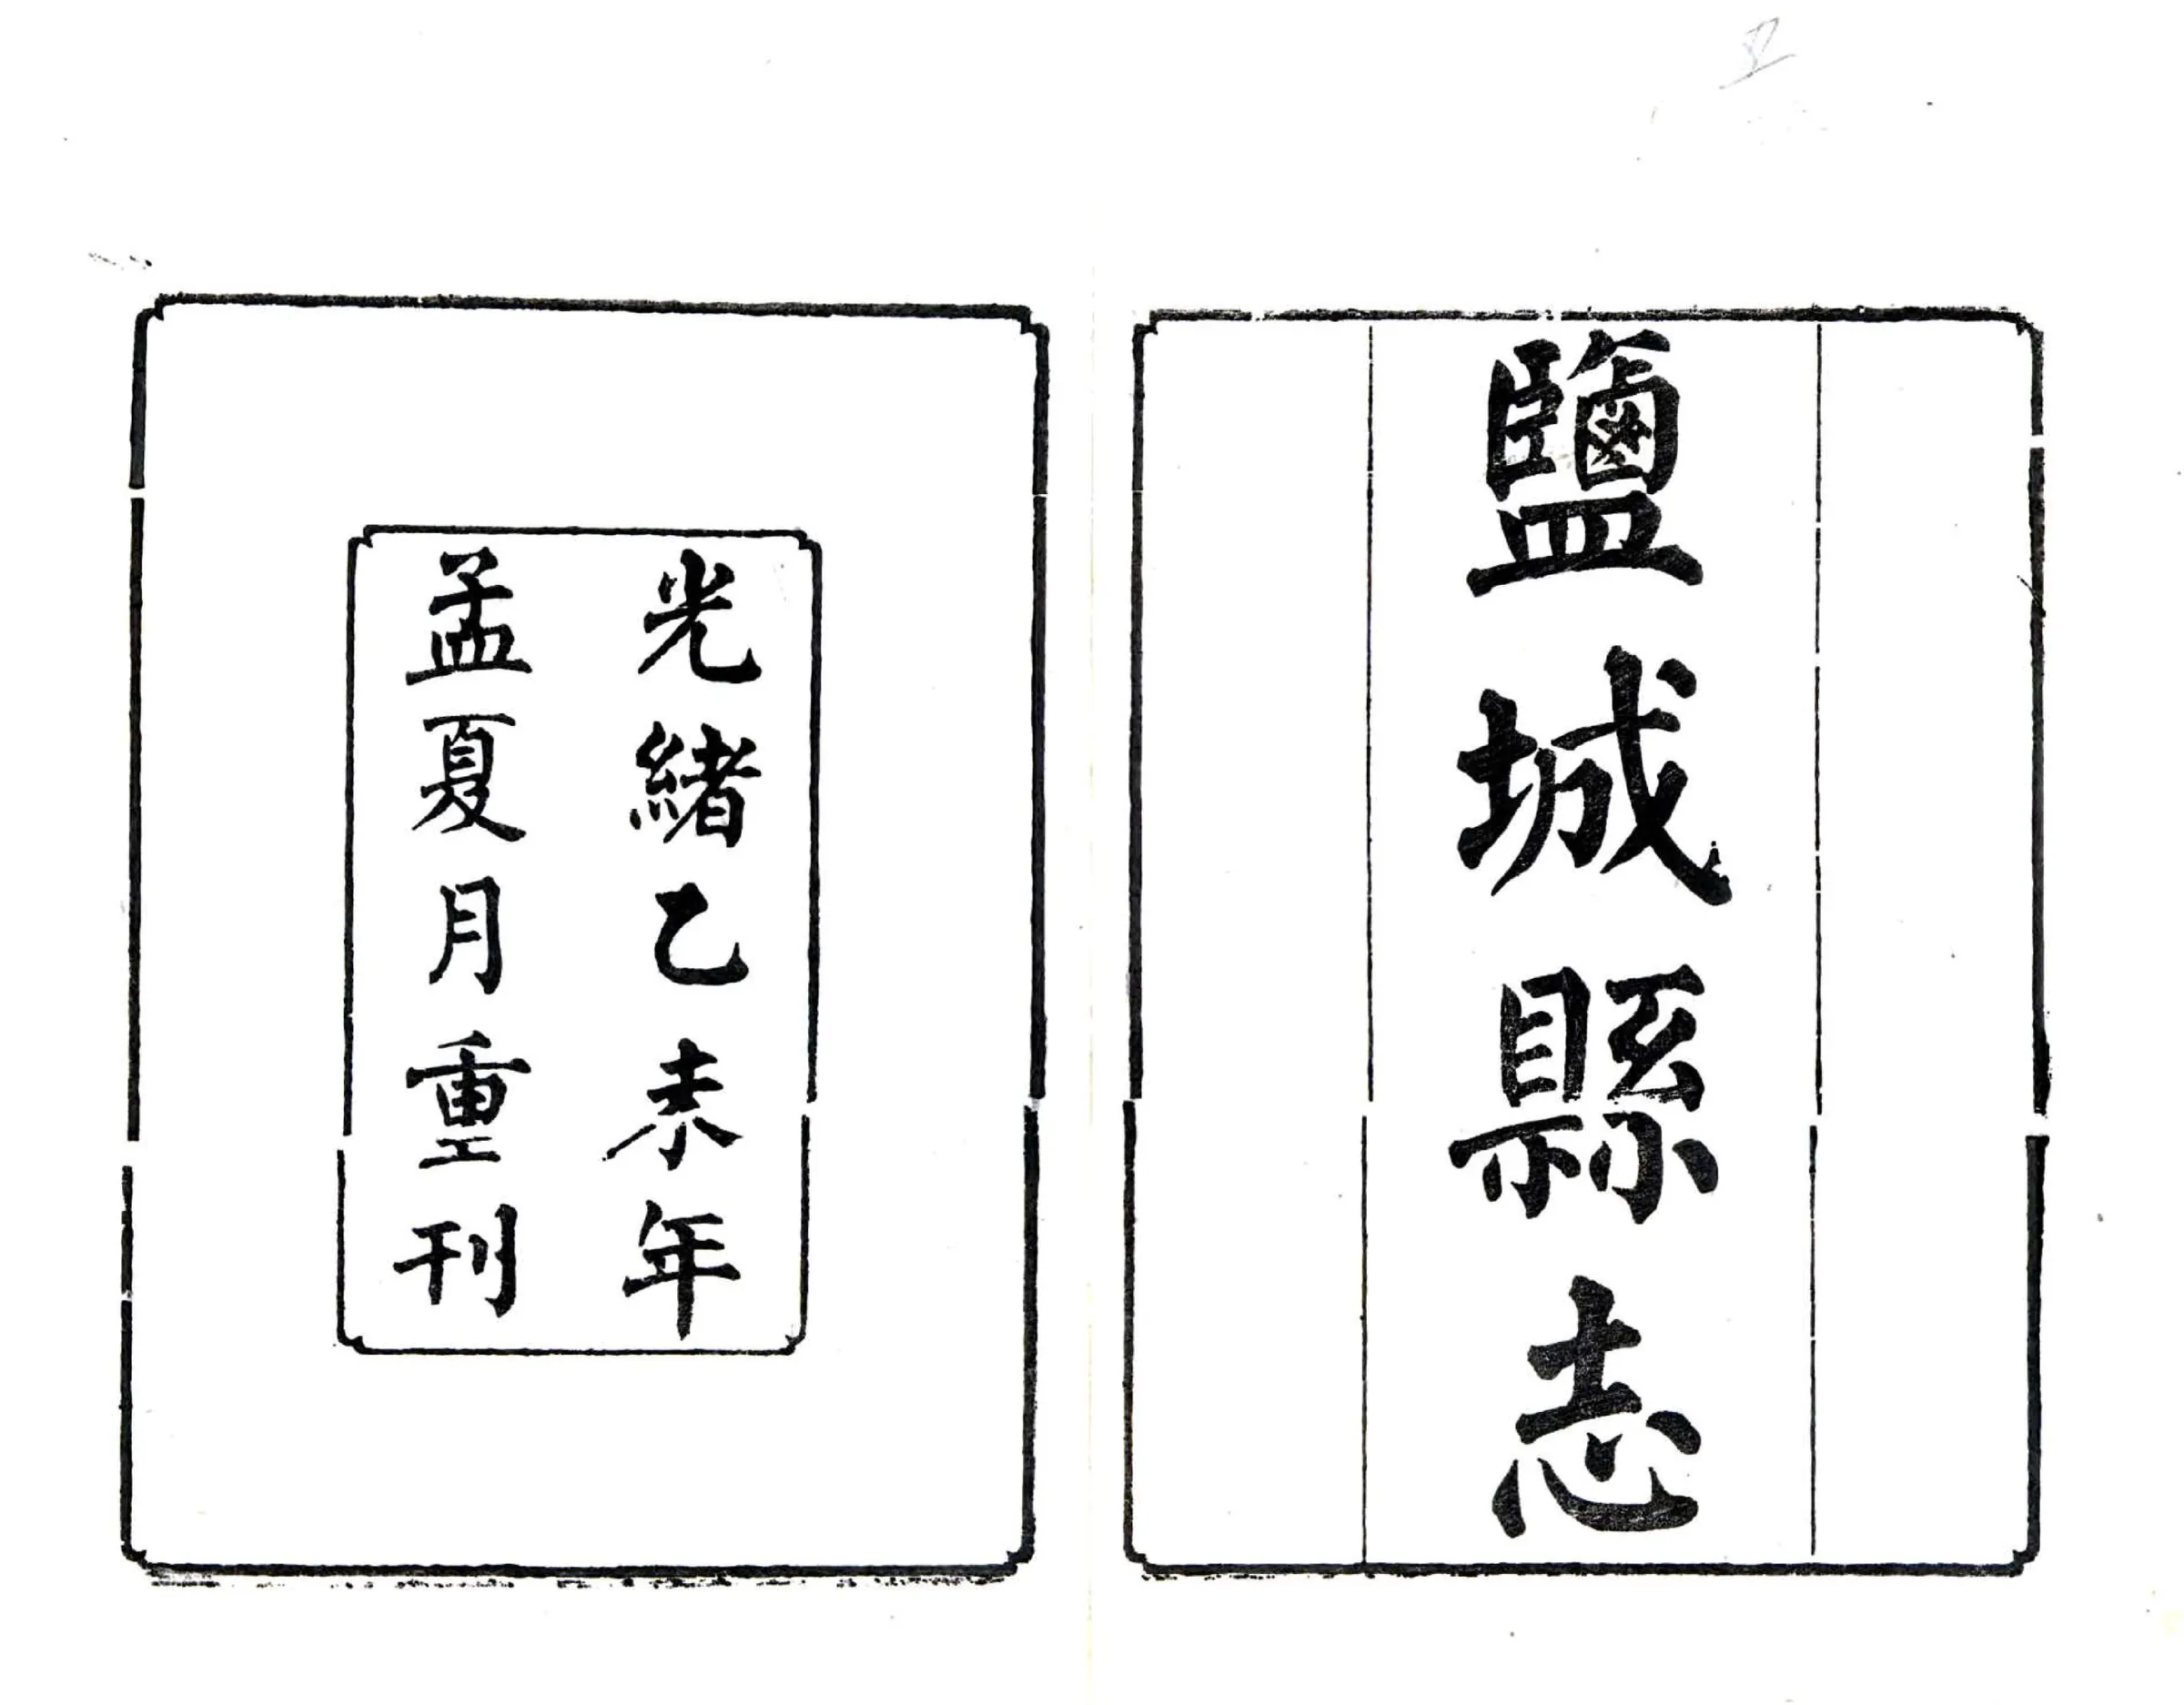 鹽城縣志
光緒乙未年
孟夏月重刊